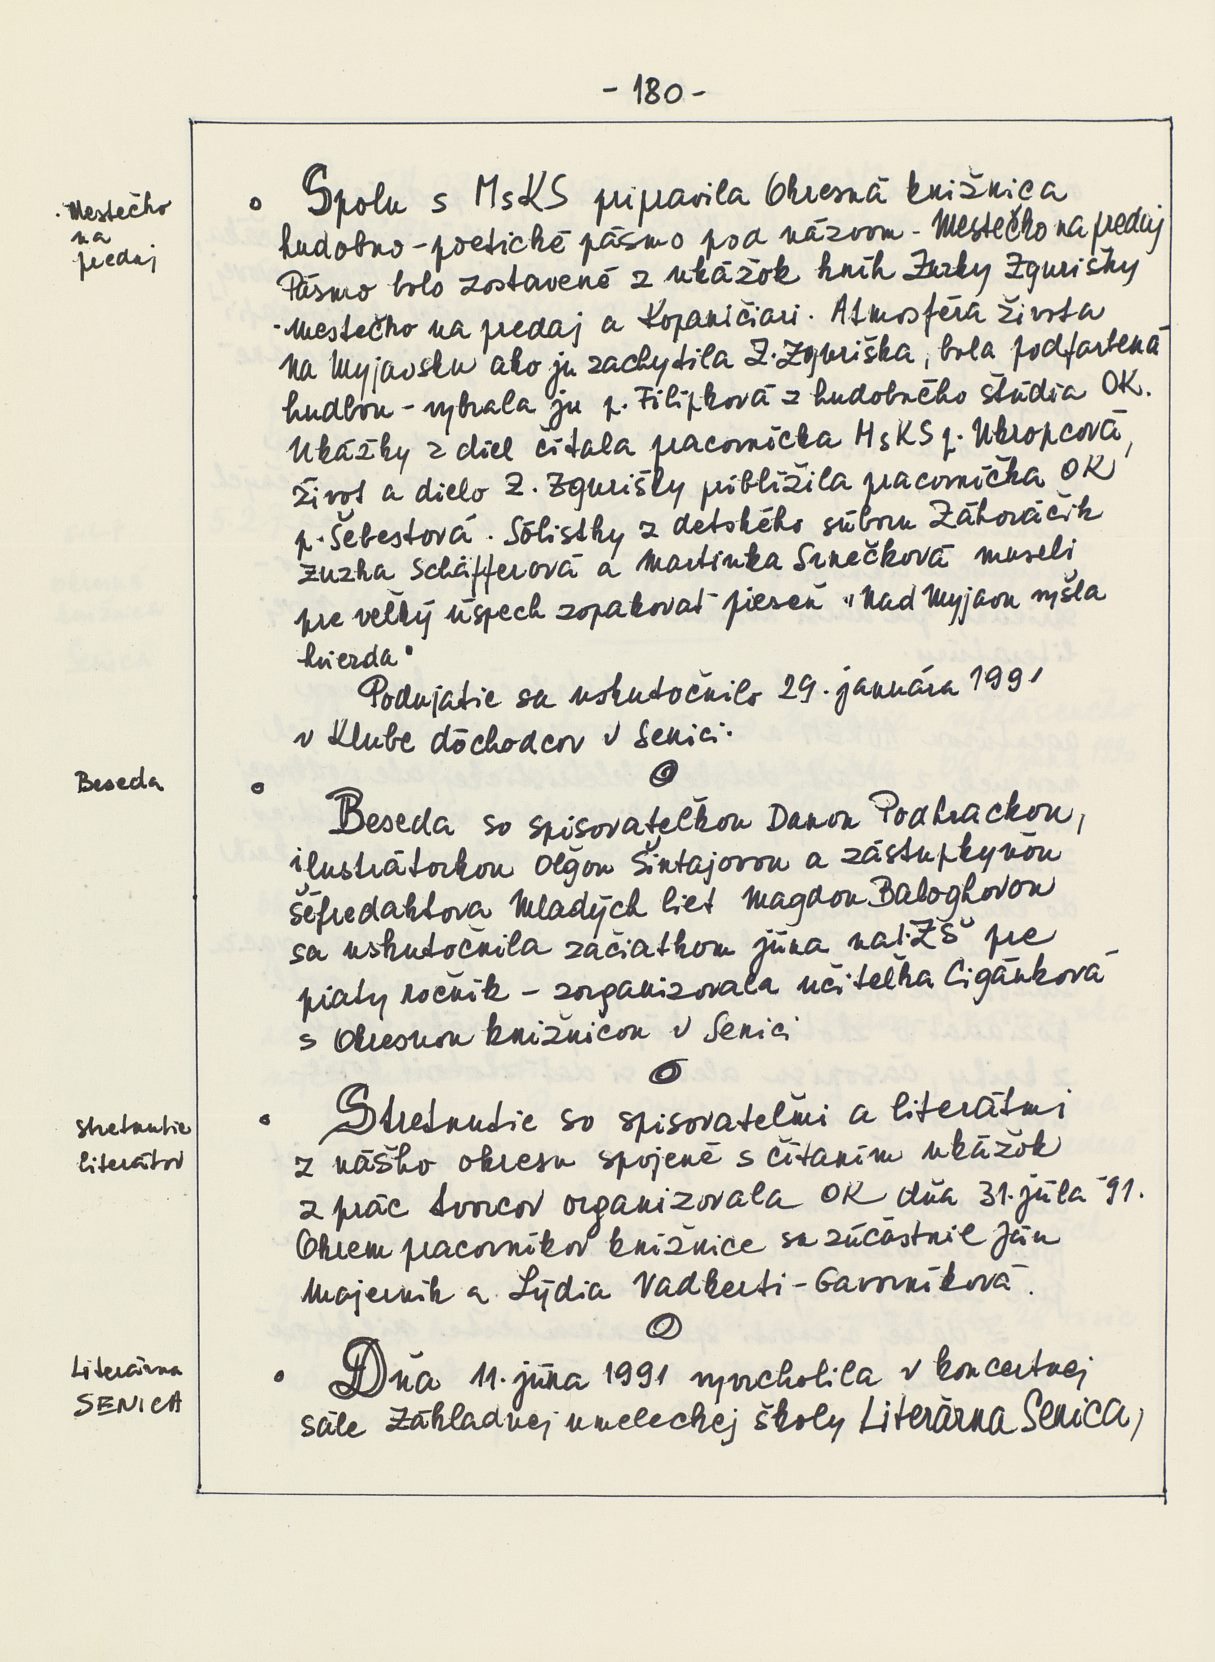 - 180 -
Mestečko
na
predaj
Spolu s MsKS pripravila Okresná knižnica
hudobno-poetické pásmo pod názvom - Mestečko na predaj
Pásmo bolo zostavené z ukážok kníh Zuzky Zgurišky
- Mestečko na predaj a Kopaničiari. Atmosféra života
na Myjavsku ako ju zachytila Z. Zguriška, bola podfarbená
hudbou - vybrala ju p. Filípková z hudobného štúdia OK.
Ukážky z diel čítala pracovníčka MsKS p. Ukropcová,
život a dielo Z. Zgurišky priblížila pracovníčka OK
p. Šebestová. Sólistky z detského súboru Záhoráčik
Zuzka Schäfferová a Martinka Srnečková museli
pre veľký úspech zopakovať pieseň "Nad Myjavou vyšla
hviezda"
Podujatie sa uskutočnilo 29. januára 1991
v Klube dôchodcov v Senici.
Beseda
Beseda so spisovateľkou Danou Podhrackou,
ilustrátorkou Oľgou Šintajovou a zástupkyňou
šéfredaktora Mladých liet Magdou Baloghovou
sa uskutočnila začiatkom júna na I. ZŠ pre
piaty ročník - zorganizovala učiteľka Cigánková
s Okresnou knižnicou v Senici
Stretnutie
literátov
Stretnutie so spisovateľmi a literátmi
z nášho okresu spojené s čítaním ukážok
z prác tvorcov organizovala OK dňa 31. júla '91.
Okrem pracovníkov knižnice sa zúčastnil Ján
Majerník a Lýdia Vadkerti-Gavorníková.
Literárna
SENICA
Dňa 11. júna 1991 vyvrcholila v koncertnej
sále Základnej umeleckej školy Literárna Senica,